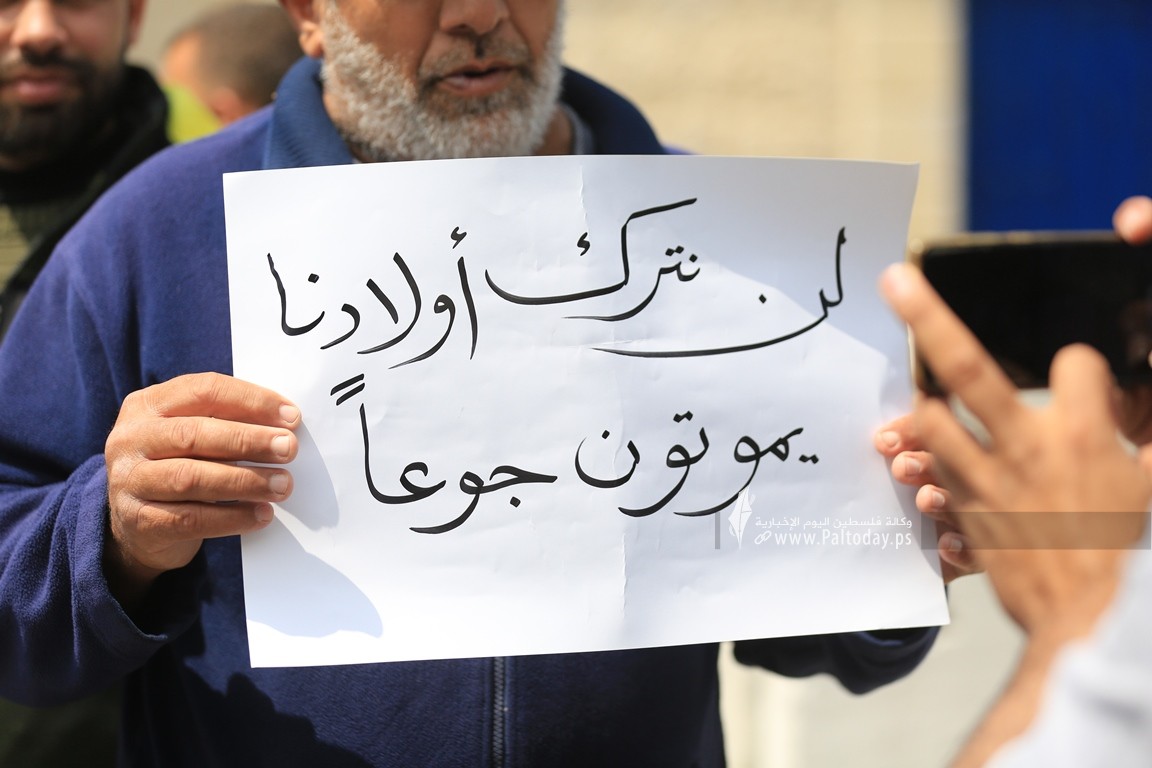 لن نترك أولادنا
يموتون جوعاً
وكالة فلسطين اليوم الإخبارية
www.Paltoday.ps